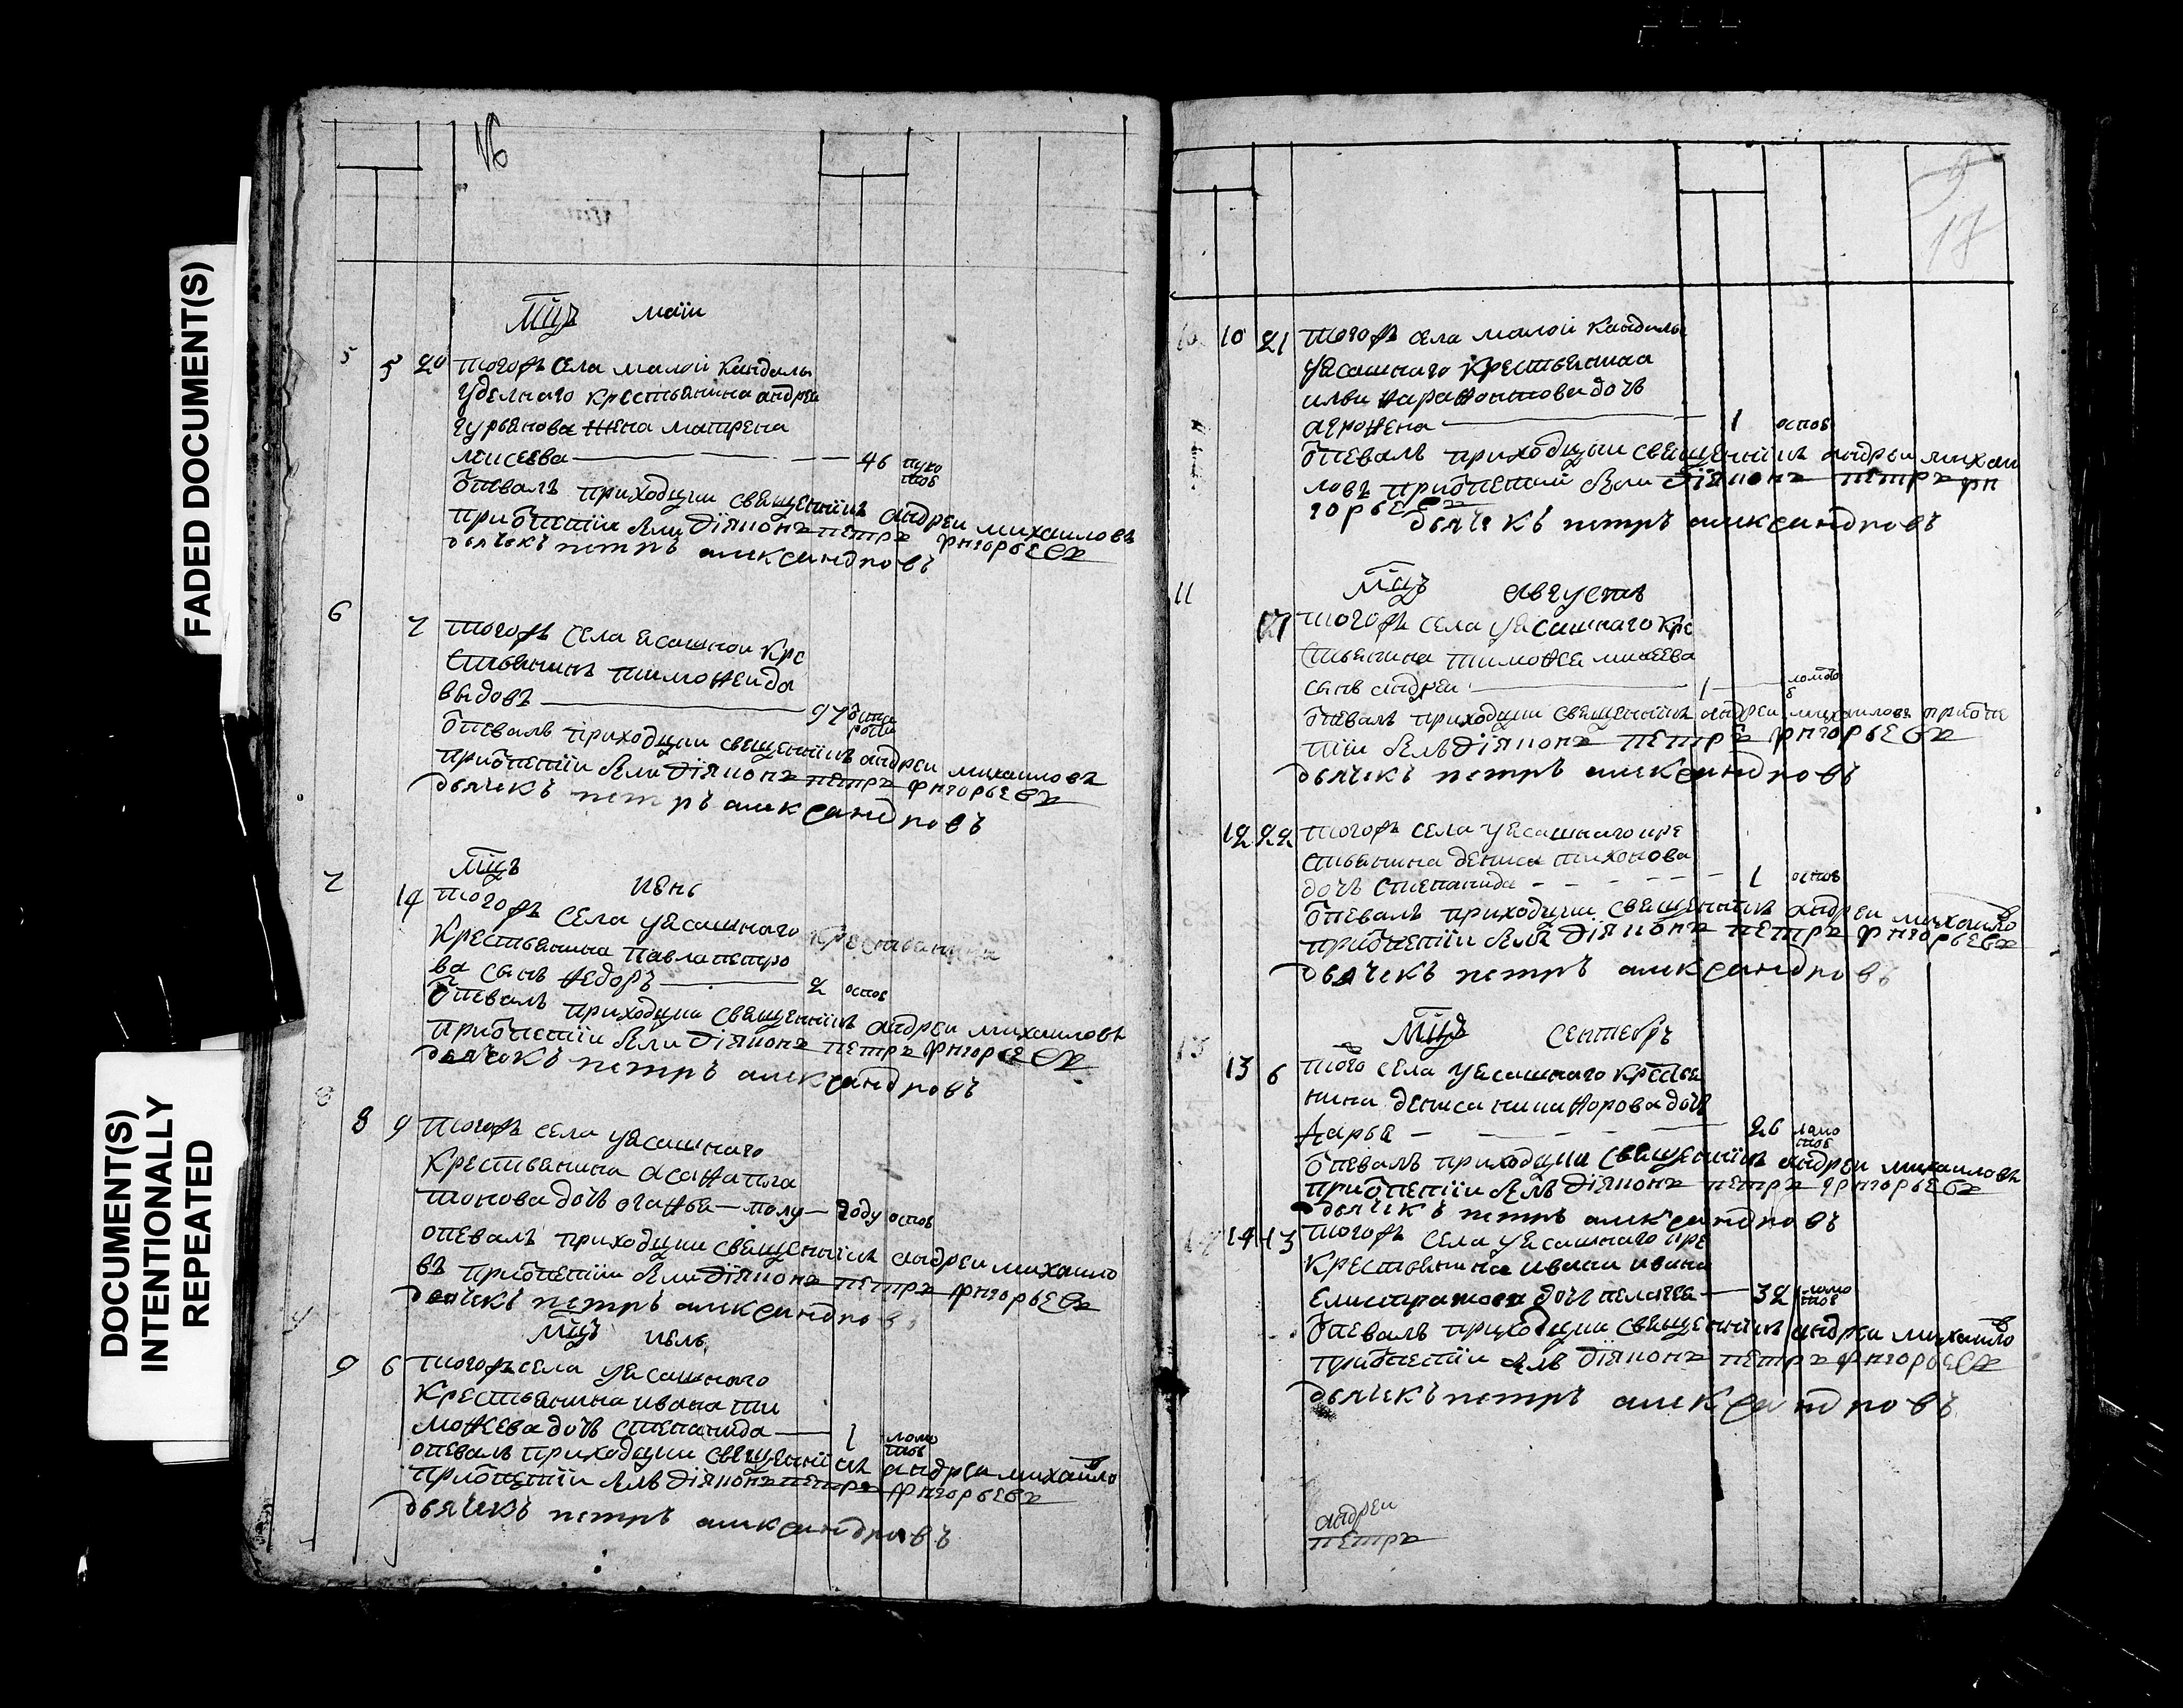 FADED DOCUMENT(S)
DOCUMENT(S)
INTENTIONALLY
REPEATED
16
мцъ маiи
5 5 20 тогожъ села малой кандалы
уделнаго крестьянина андрея
гурьянова жена матрена
моисеева 46
опевалъ приходцки священникъ андреи михаиловъ
при опетiи были дiяконъ петръ григорьевъ
дьячекъ петръ александровъ
6 7 тогожъ села ясашной кре
стьянинъ тимофеи да
выдовъ 97
опевалъ приходцки священникъ андреи михаиловъ
при опетiи были дiяконъ петръ григорьевъ
дьячекъ петръ александровъ
мцъ июнь
7 14 тогожъ села уясашнаго
крестьянина павла петро
ва сынъ федоръ 2 оспою
опевалъ приходцки священникъ андреи михаиловъ
при опетiи были дiяконъ петръ григорьевъ
дьячекъ петръ александровъ
8 8 9 тогожъ села уясашнаго
крестьянина
дочь полу году оспою
опевалъ приходцки священникъ андреи михаило
въ при опетiи были дiяконъ петръ григорьевъ
дьячекъ петръ александровъ
мцъ июль
9 6 тогожъ села уясашнаго
крестьянина ивана ти
мофеева дочь степанида 1
опевалъ приходцки священникъ андреи михаило
при опетiи былъ дiяконъ петръ григорьевъ
дьячекъ петръ александровъ
17
10 10 21 тогожъ села малой кандалы
уясашнаго крестьянина
ильи дочь
1 оспою
опевалъ приходцки священникъ андреи михаи
ловъ при опетiи были дiяконъ петръ гри
горьевъ
дьячекъ петръ александровъ
мцъ августъ
11 17 тогожъ села уясашнаго кре
стьянина тимофея
сынъ андреи 1
опевалъ приходцки священникъ андреи михаиловъ при опе
тiи былъ дiяконъ петръ григорьевъ
дьячекъ петръ александровъ
12 22 тогожъ села уясашнаго кре
стьянина дениса тихонова
дочь степанида 1 оспою
опевалъ приходцки священникъ андреи михаило
при опетiи былъ дiяконъ петръ григорьевъ
дьячекъ петръ александровъ
мцъ сентебръ
13 13 6 того села уясашнаго крестья
нина дениса никифорова дочь
дарья 26
опевалъ приходцки священникъ андреи михаиловъ
при опетiи былъ дiяконъ петръ григорьевъ
дьячекъ петръ александровъ
14 14 13 тогожъ села уясашнаго кре
крестьянина ивана
дочь пелагея 32
опевалъ приходцки священникъ андреи михаило
при опетiи былъ дiяконъ петръ григорьевъ
дьячекъ петръ александровъ
андреи
петръ